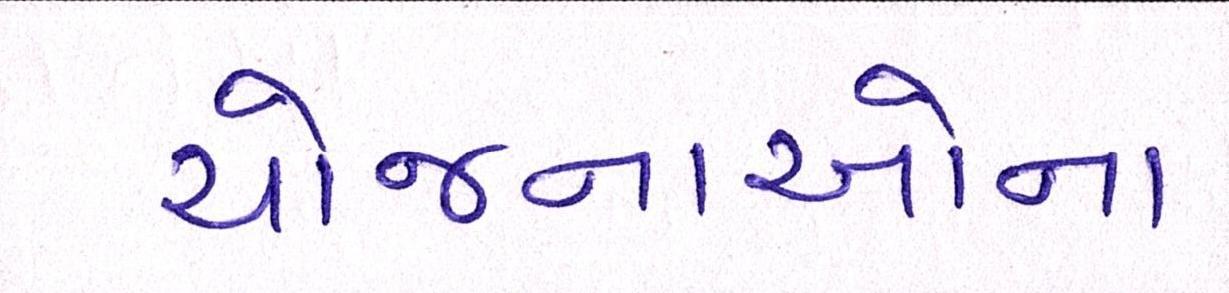 યોજનાઓના